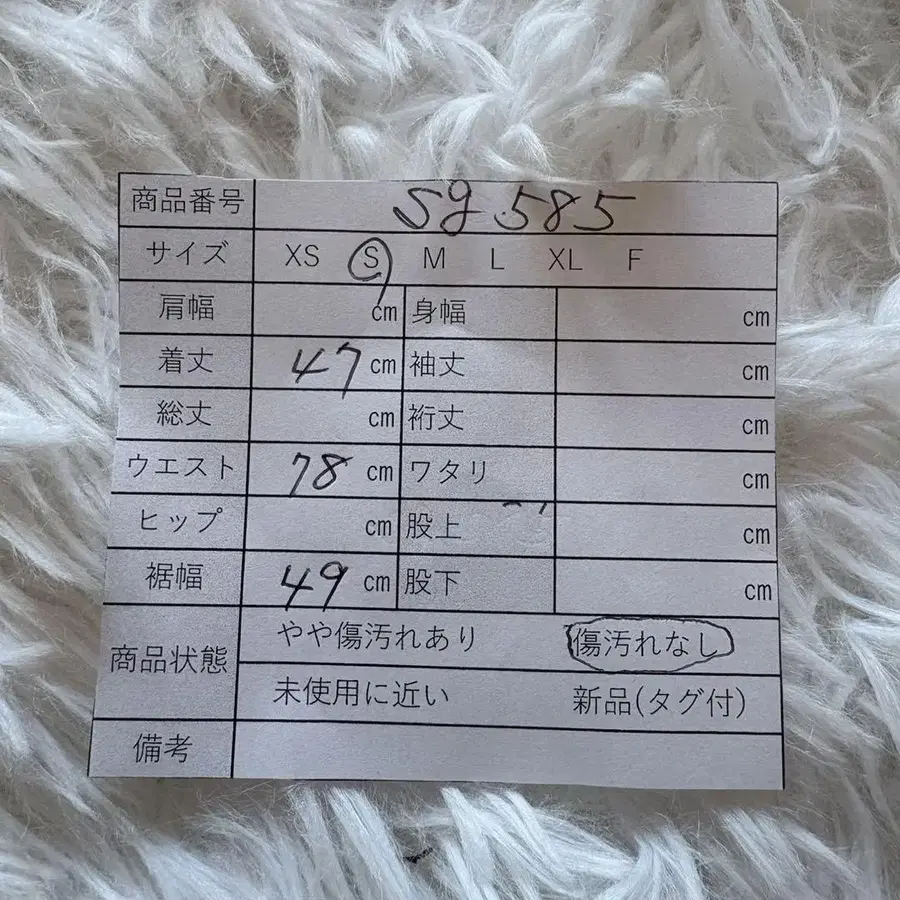 商品番号 Sg.585
サイズ XS S M L XL F
肩幅 cm 身幅 cm
着丈 47 cm 袖丈 cm
総丈 cm 裄丈 cm
ウエスト 78 cm ワタリ cm
ヒップ cm 股上 cm
裾幅 49 cm 股下 cm
商品状態 やや傷汚れあり 傷汚れなし
未使用に近い 新品(タグ付)
備考